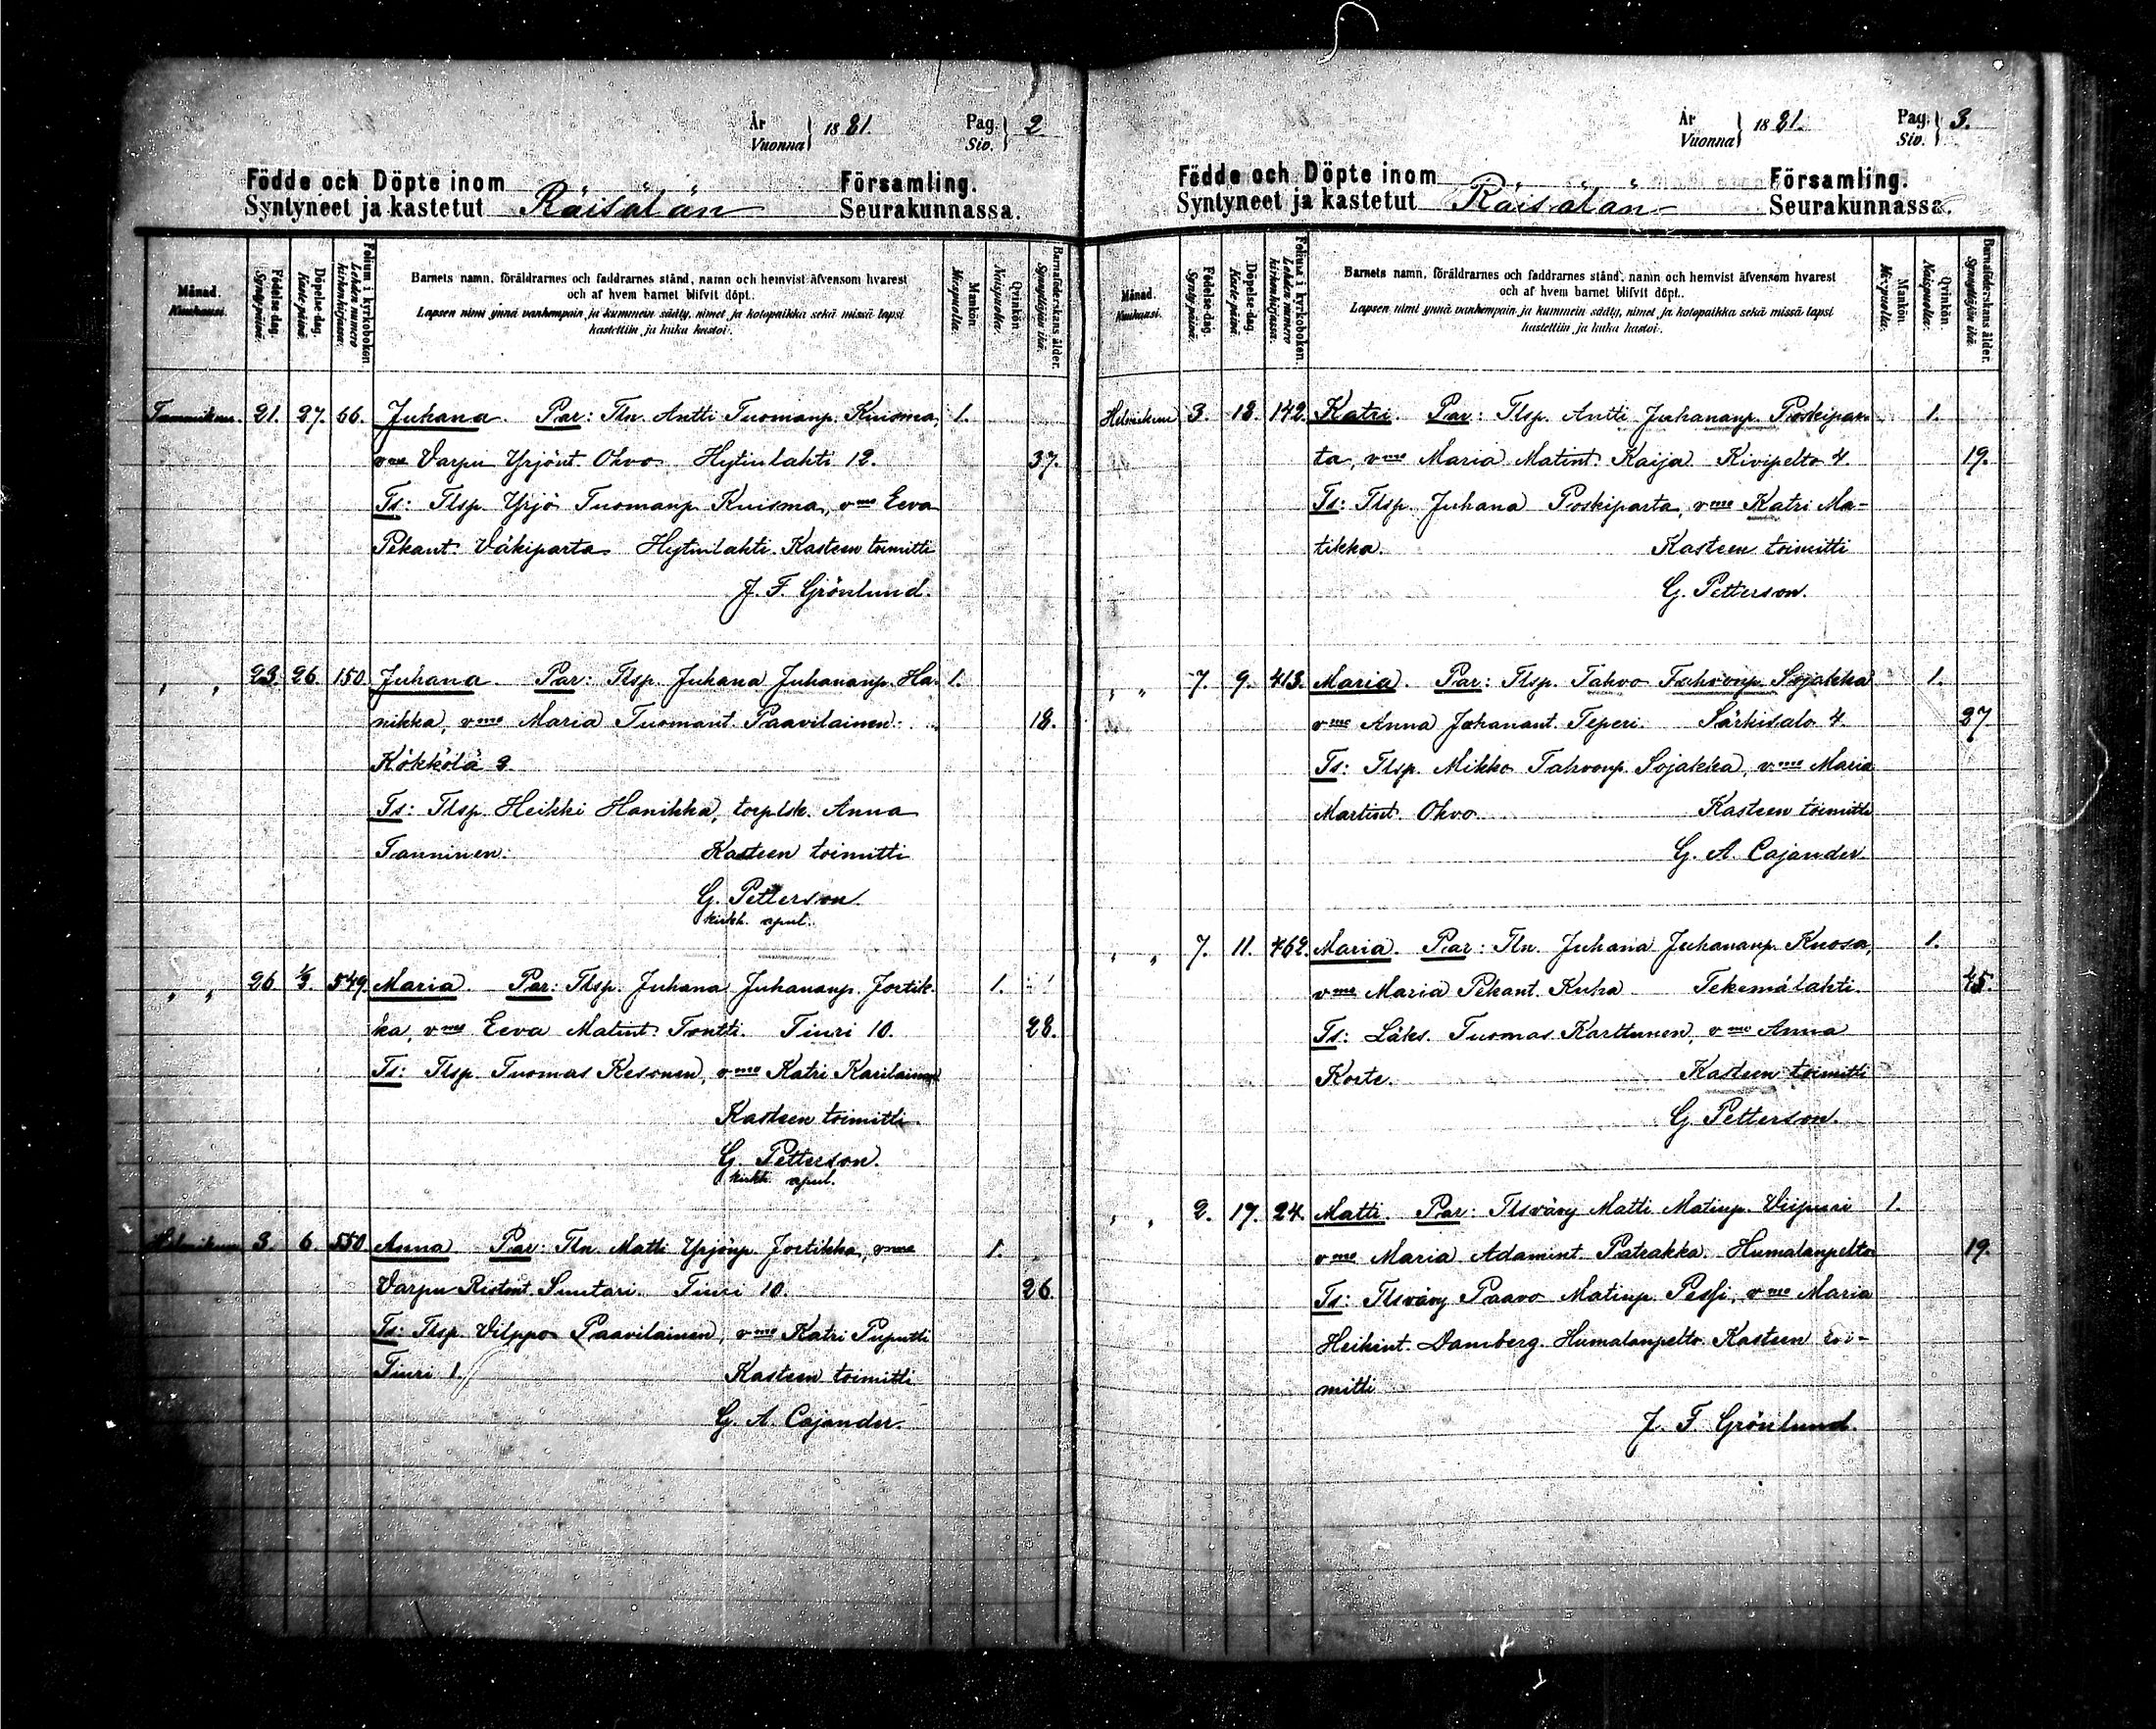 År
Vuonna } 1881.
Pag.
Siv. } 2
Födde och Döpte inom Församling.
Syntyneet ja kastetut Räisälän Seurakunnassa.
Månad.
Kuukausi.
Födelse-dag.
Syntypäivä.
Döpelse-dag.
Kaste-päivä.
Folium i kyrkoboken.
Lehden numero kirkonkirjassa.
Barnets namn, föräldrarnes och faddrarnes stånd, namn och hemvist äfvensom hvarest
och af hvem barnet blifvit döpt.
Lapsen nimi ynnä vanhempain ja kummein sääty, nimet ja kotopaikka sekä missä lapsi
kastettiin ja kuka kastoi.
Mankön.
Miespuolta.
Qvinkön.
Naispuolta.
Barnaföderskans ålder.
Synnyttäjän ikä.
Tammikuu. 21. 27. 66. Juhana. Par: Tln. Antti Tuomanp. Kuisma, 1.
vmo Varpu Yrjönt. Ohvo Hytinlahti 12. 37.
Ts: Tlsp. Yrjö Tuomanp. Kuisma, vmo Eeva
Pekant. Väkiparta Hytinlahti. Kasteen toimitti
J. F. Grönlund.
" " 23. 26. 150. Juhana. Par: Tlsp. Juhana Juhananp. Ha- 1.
nikka, vmo Maria Tuomant. Paavilainen. 18.
Kökkölä 2.
Ts: Tlsp. Heikki Hanikka, torp. lsk. Anna
Tanninen. Kasteen toimitti
G. Petterson.
kirkh. apul.
" " 26 1/2. 549. Maria. Par: Tlsp. Juhana Juhananp. Jortik- 1.
ka, vmo Eeva Matint. Tontti. Tiuri 10. 28.
Ts: Tlsp. Tuomas Kesonen, vmo Katri Karilainen
Kasteen toimitti.
G. Petterson.
kirkh. apul.
Helmikuu 3. 6. 550. Anna. Par: Tln. Matti Yrjönp. Jortikka, vmo 1.
Varpu Ristont. Suutari. Tiuri 10. 26.
Ts: Tlsp. Vilppo Paavilainen, vmo Katri Puputti
Tiuri 1. Kasteen toimitti
G. A. Cajander.
År
Vuonna } 1881.
Pag.
Siv. } 3.
Födde och Döpte inom Församling.
Syntyneet ja kastetut Räisälän Seurakunnassa.
Månad.
Kuukausi.
Födelse-dag.
Syntypäivä.
Döpelse-dag.
Kaste-päivä.
Folium i kyrkoboken.
Lehden numero kirkonkirjassa.
Barnets namn, föräldrarnes och faddrarnes stånd, namn och hemvist äfvensom hvarest
och af hvem barnet blifvit döpt.
Lapsen nimi ynnä vanhempain ja kummein sääty, nimet ja kotopaikka sekä missä lapsi
kastettiin ja kuka kastoi.
Mankön.
Miespuolta.
Qvinkön.
Naispuolta.
Barnaföderskans ålder.
Synnyttäjän ikä.
Helmikuu 3. 13. 142. Katri. Par: Tlsp. Antti Juhananp. Poskipar- 1.
ta, vmo Maria Matint. Kaija Kivipelto 4. 19.
Ts: Tlsp. Juhana Poskiparta, vmo Katri Ma-
tikka. Kasteen toimitti
G. Petterson.
" " 7. 9. 413. Maria. Par: Tlsp. Tahvo Tahvonp. Sojakka 1.
vmo Anna Juhanant. Teperi. Särkisalo 4. 27
Ts: Tlsp. Mikko Tahvonp. Sojakka, vmo Maria
Martint. Ohvo. Kasteen toimitti
G. A. Cajander
" " 7. 11. 462. Maria. Par: Tln. Juhana Juhananp. Kuosa, 1.
vmo Maria Pekant. Kuha Tekemälahti. 45.
Ts: Läks. Tuomas Karttunen, vmo Anna
Korte. Kasteen toimitti
G. Petterson.
" " 2. 17. 24. Matti. Par: Tlsvävy Matti Matinp. Viipuri 1.
vmo Maria Adamint. Patrakka. Humalanpelto 19.
Ts: Tlsvävy Paavo Matinp. Pessi, vmo Maria
Heikint. Damberg. Humalanpelto. Kasteen toi-
mitti
J. F. Grönlund.